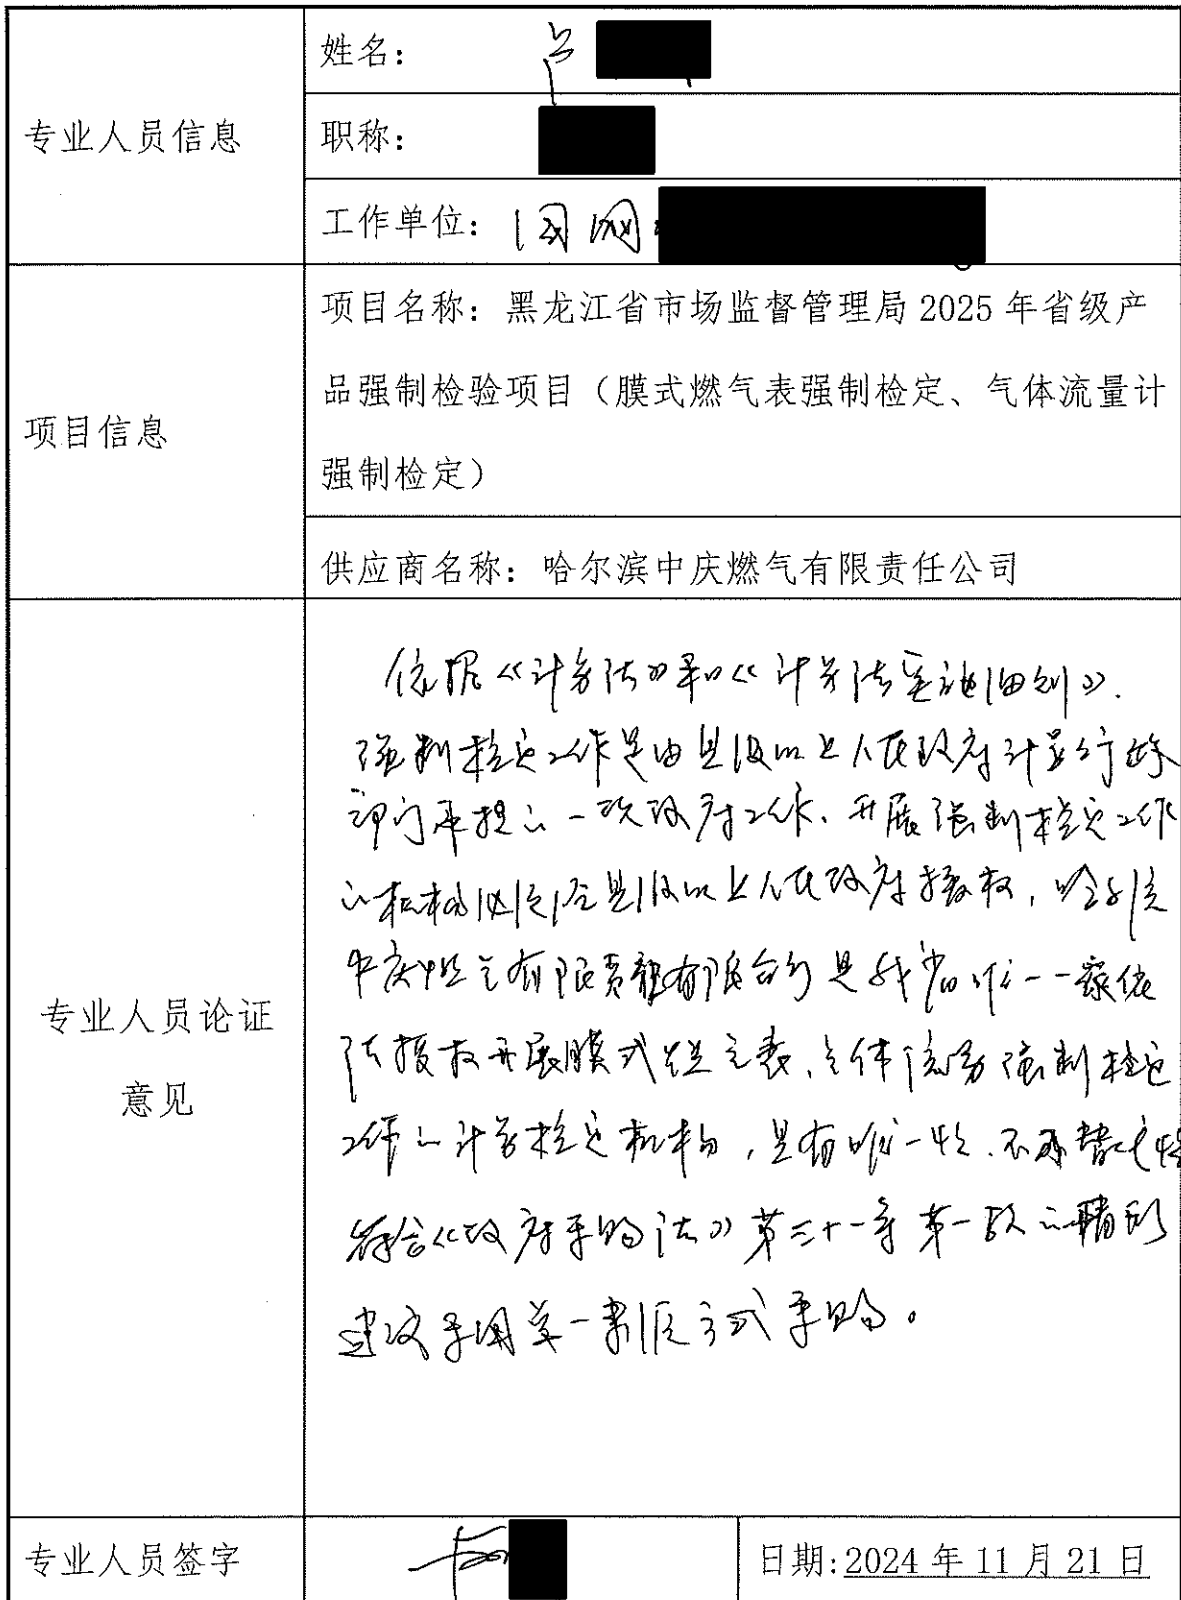 专业人员信息
姓名：
职称：
工作单位：国网
项目信息
项目名称：黑龙江省市场监督管理局 2025 年省级产
品强制检验项目（膜式燃气表强制检定、气体流量计
强制检定）
供应商名称：哈尔滨中庆燃气有限责任公司
专业人员论证
意见
依据《计量法》和《计量法实施细则》.
强制检定工作是由县级以上人民政府计量行政
部门承担的一项政府工作、开展强制检定工作
的机构必须经县级以上人民政府授权，哈尔滨
中庆燃气有限责任有限公司是我省唯一一家依
法授权开展膜式燃气表、气体流量强制检定
工作的计量检定机构，具有唯一性、不可替代性
符合《政府采购法》第三十一条第一款的情形
建议采用单一来源方式采购。
专业人员签字
日期:2024 年 11 月 21 日